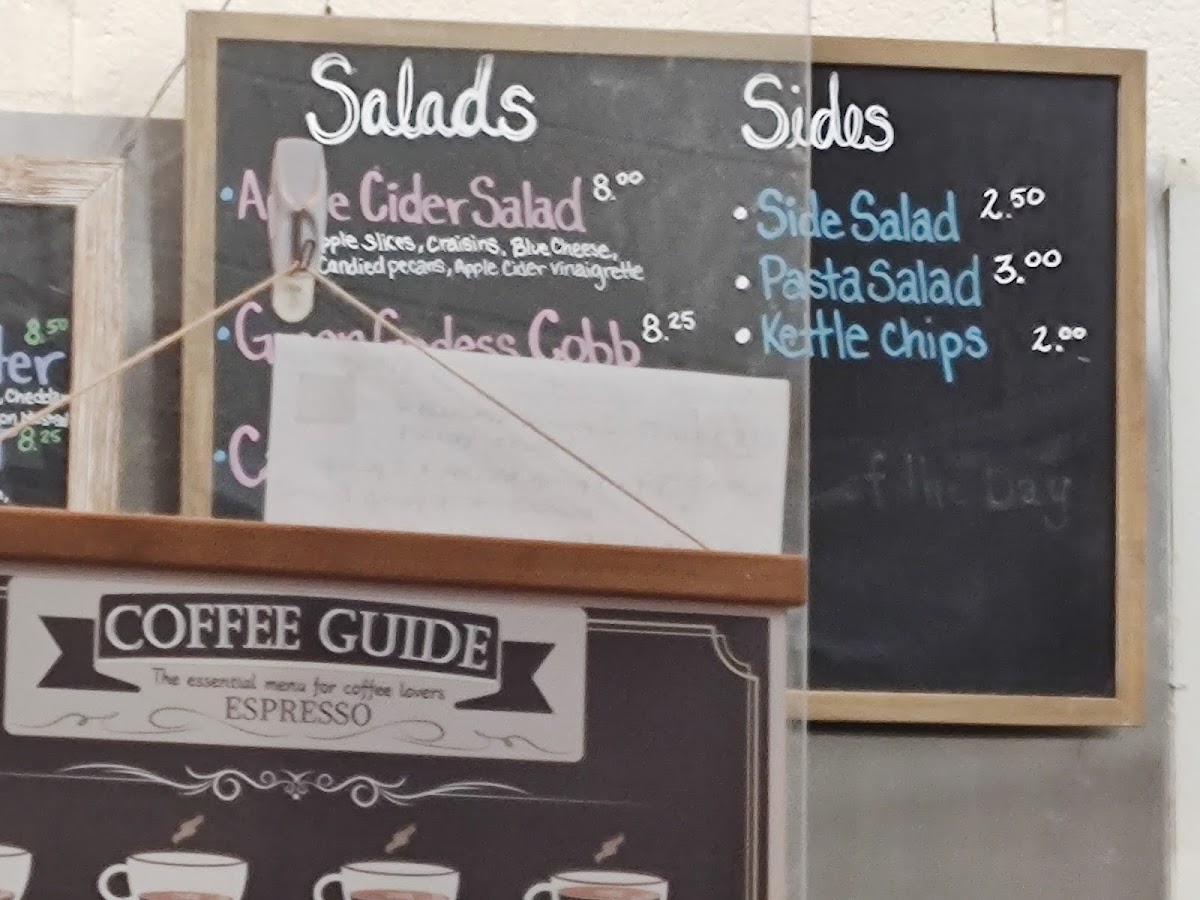 Salads
Cider Salad 8.00
slices, Craisins, Blue Cheese,
Candied pecans, Apple Cider vinaigrette
Cobb 8.25
Sides
• Side Salad 2.50
• Pasta Salad 3.00
• Kettle chips 2.00
the Day
8.50
8.25
COFFEE GUIDE
The essential menu for coffee lovers
ESPRESSO